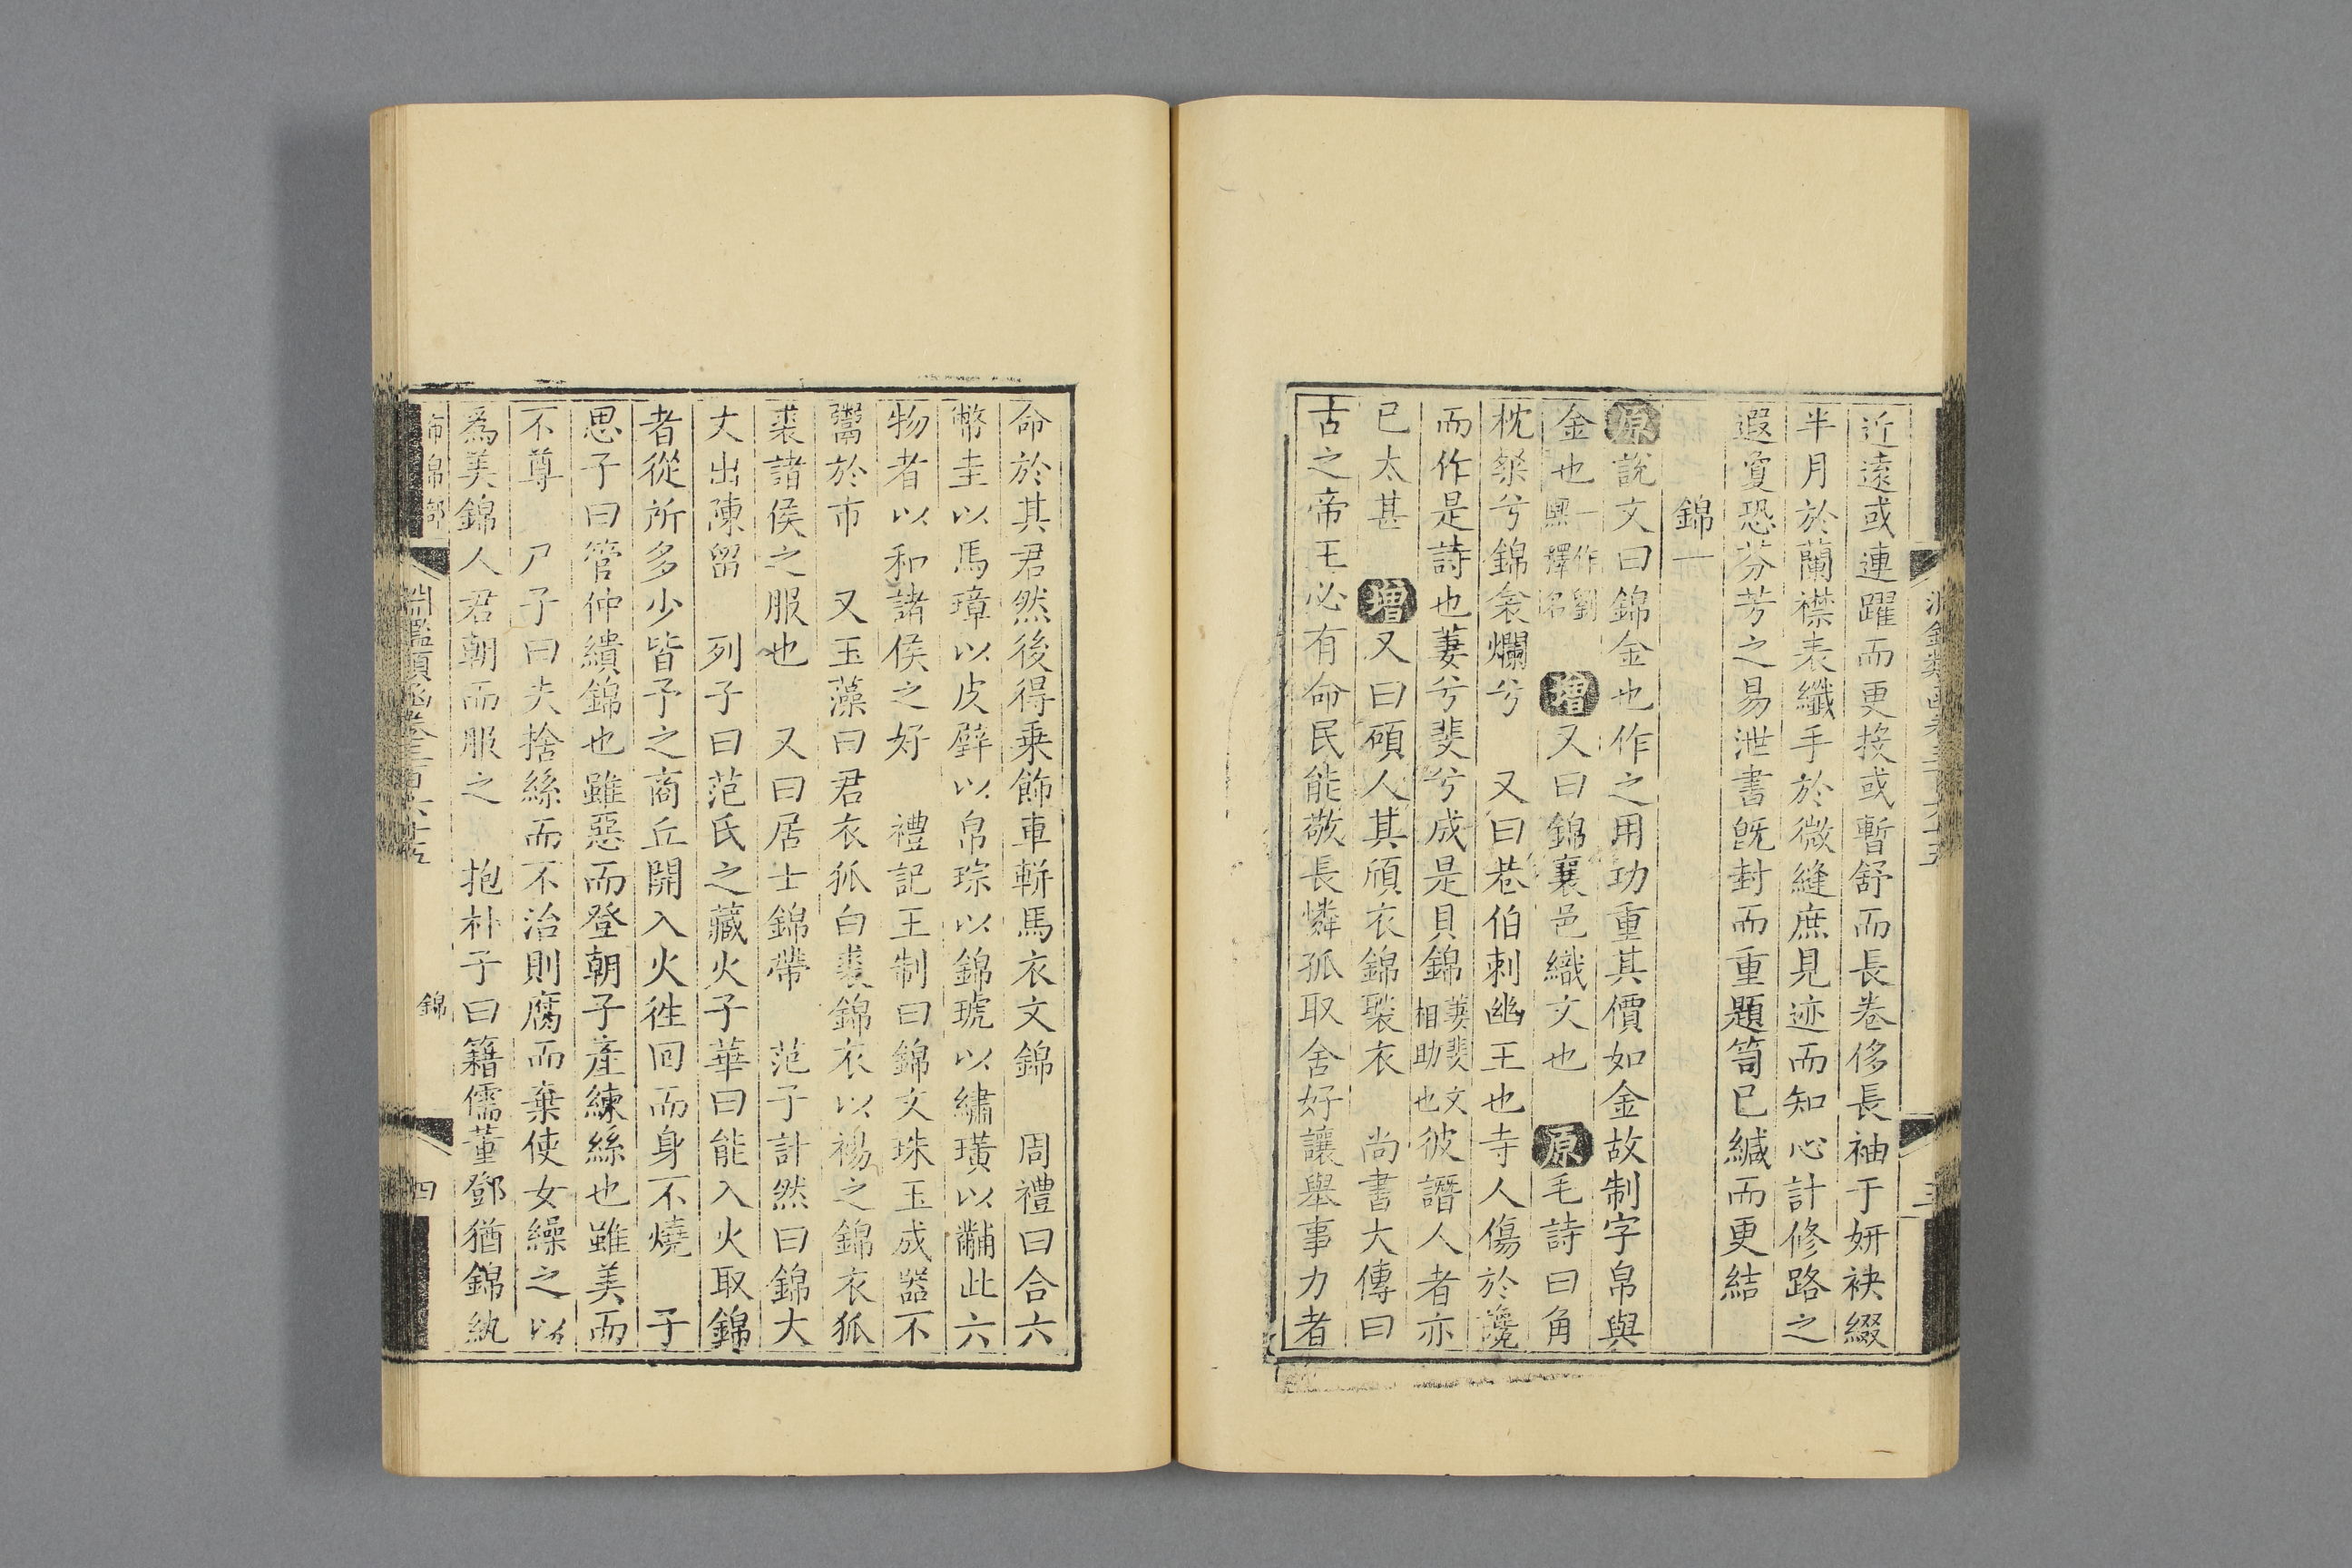 近遠或連躍而更挨或暫舒而長卷侈長袖于妍袂綴
半月於蘭襟表纖手於微縫庶見迹而知心計修路之
遐敻恐芬芳之易泄書既封而重題笥已緘而更結
錦一
原說文曰錦金也作之用功重其價如金故制字帛與
金也一作劉熙釋名 增又曰錦襄邑織文也 原毛詩曰角
枕粲兮錦衾爛兮 又曰巷伯刺幽王也寺人傷於讒
而作是詩也萋兮斐兮成是貝錦萋斐文相助也彼譖人者亦
已太甚 增又曰碩人其頎衣錦褧衣 尚書大傳曰
古之帝王必有命民能敬長憐孤取舍好讓舉事力者
命於其君然後得乗飾車軿馬衣文錦 周禮曰合六
幣圭以馬璋以皮璧以帛琮以錦琥以繡璜以黼此六
物者以和諸侯之好 禮記王制曰錦文珠玉成器不
鬻於市 又玉藻曰君衣狐白裘錦衣以裼之錦衣狐
裘諸侯之服也 又曰居士錦帶 范子計然曰錦大
丈出陳留 列子曰范氏之藏火子華曰能入火取錦
者從所多少皆予之商丘開入火徃囘而身不燒 子
思子曰管仲繢錦也雖惡而登朝子產練絲也雖美而
不尊 尸子曰夫捨絲而不治則腐而棄使女繰之以
為美錦人君朝而服之 抱朴子曰籍儒董鄧猶錦紈
布帛部 淵鑑類函卷三百六十五 錦 四